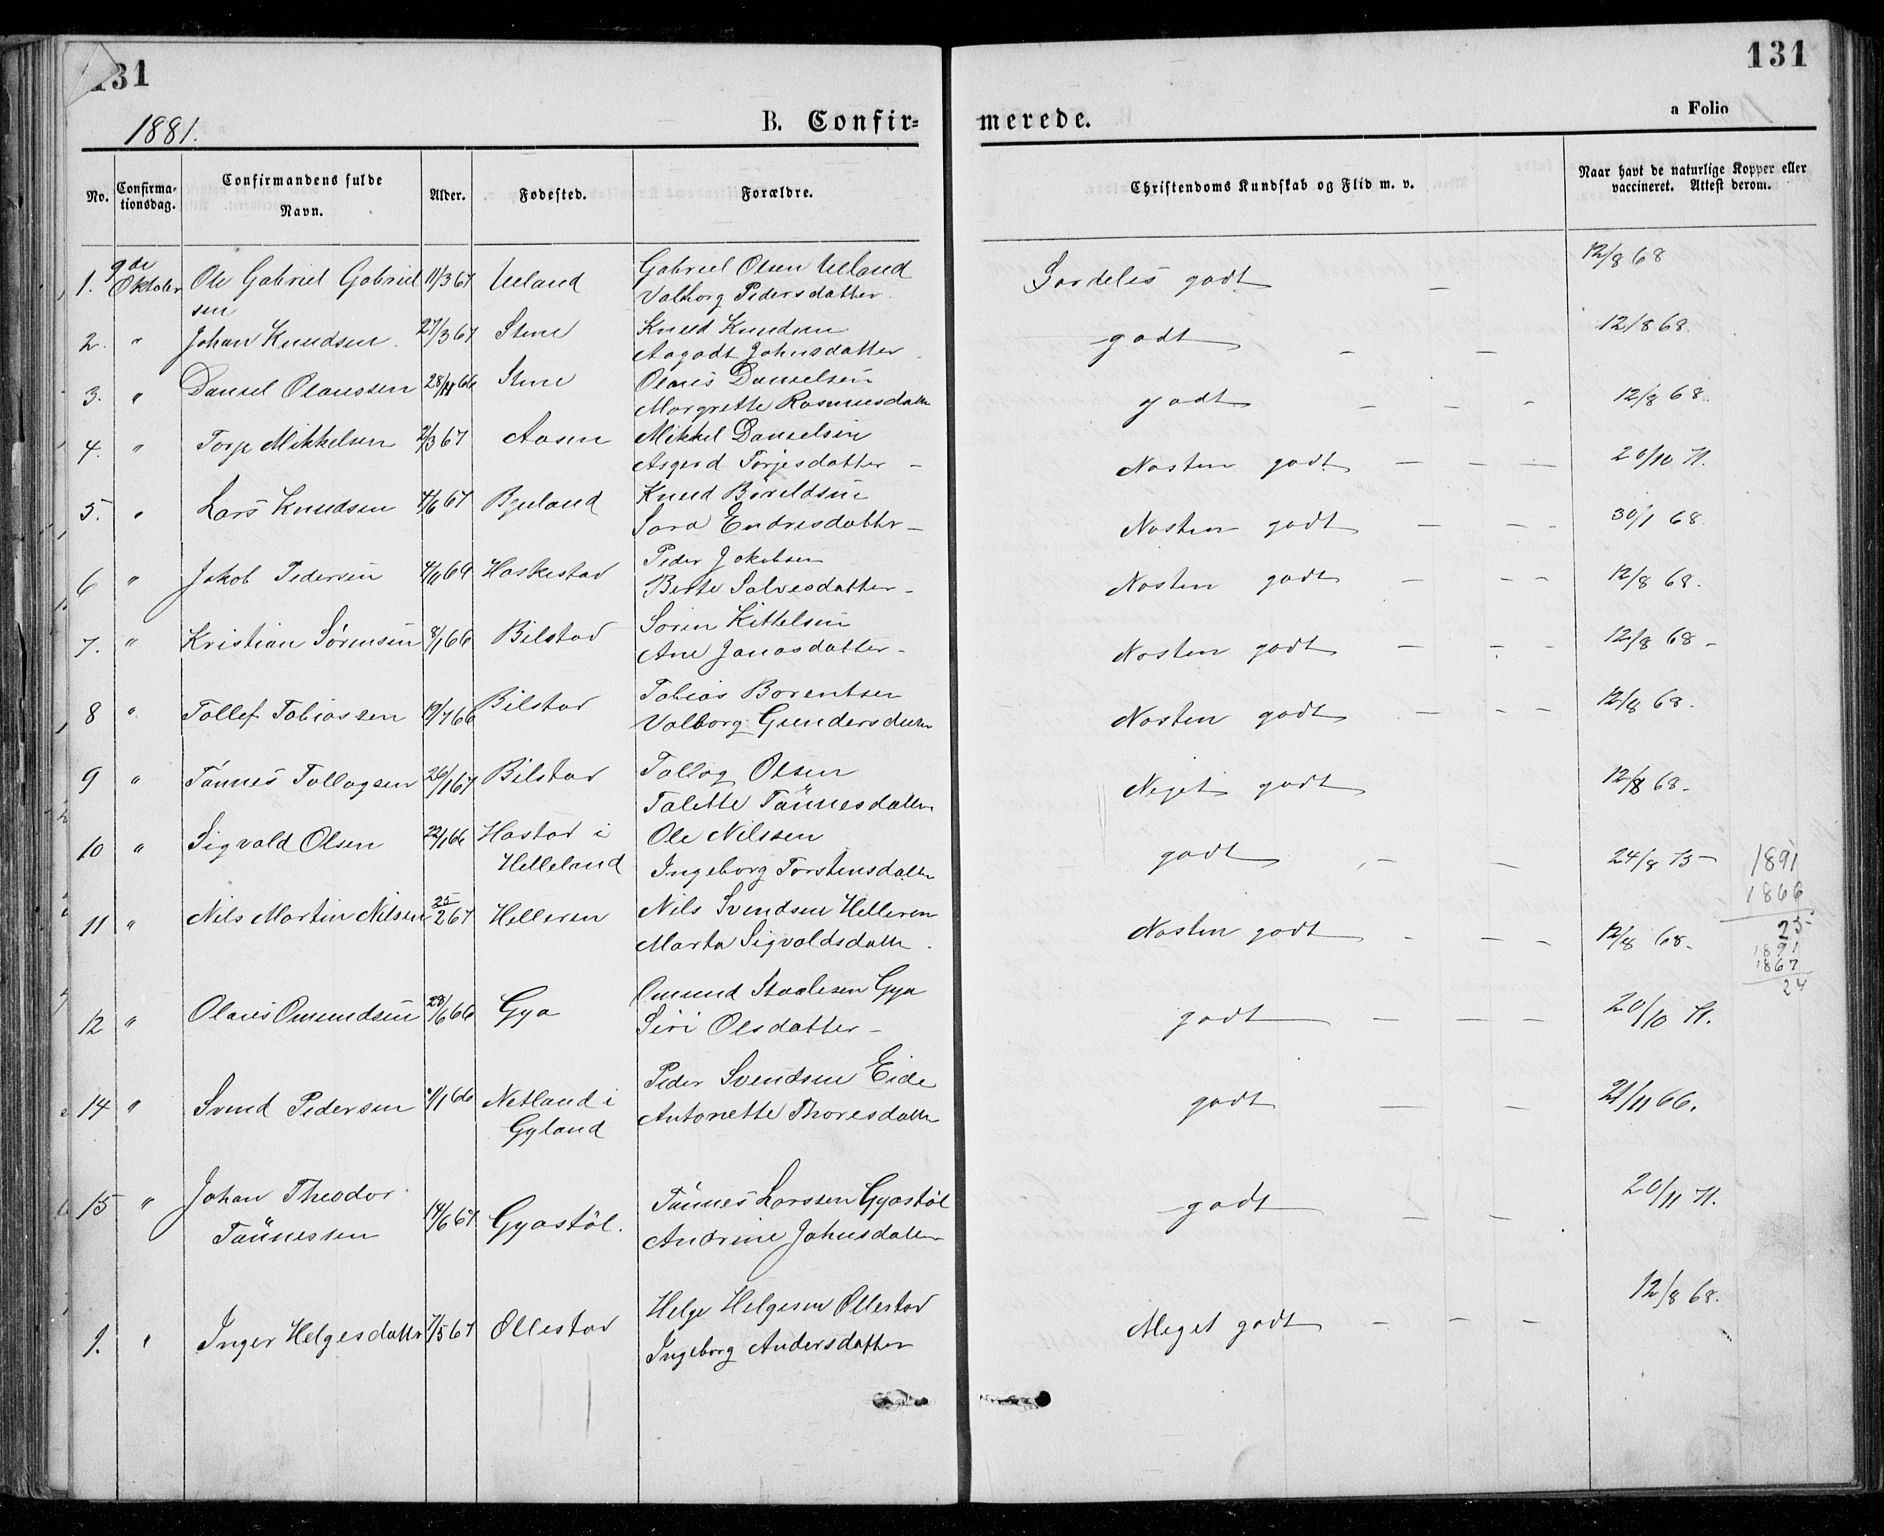 131
131
1881.
B. Confir=
merede.
a Folio
No.
Confirma-
tionsdag.
Confirmandens fulde
Navn.
Alder.
Fødested.
Forældre.
Christendoms Kundskab og Flid m. v.
Naar havt de naturlige Kopper eller
vaccineret. Attest derom.
1. 9de Oktober Ole Gabriel Gabriel 11/3 67 Ueland Gabriel Olsen Ueland godt - 12/8 68
sen Valborg Pedersdatter.
2. " Johan Knudsen. 27/3 67 Stene Knud Knudsen godt - - 12/8 68.
Aagodt Johnsdatter.
3. " Daniel Olaussen 28/11 66 Stene Olaus Danielsen godt - - - 12/8 68.
Margrette Rasmusdatter
4. " Torje Mikkelsen 2/3 67 Aasen Mikkel Danielsen Nosten godt - - - 20/10 71.
Asgerd Torjesdatter -
5. " Lars Knudsen 4/6 67 Bjuland Knud Nosten godt - - - 30/1 68.
Sara Endresdatter -
6 " Jakob Pedersen Haskestad Peder Jakobsen Nosten godt - - - 12/8 68.
Berte Salvesdatter -
7. " Kristian Sørensen 8/1 66 Bilstad Soren Kittelsen Nosten godt - - - 12/8 68 -
Ane Janasdatter -
8 " Tollef Tobiassen 19/7 66 Bilstad Tobias Borentsen Nosten godt - - - 12/8 68.
Valborg Gundersdatter
9 " Tönnes Tollagsen 26/1 67 Bilstad Tollag Olsen Meget godt 12/8 68 -
Talette Tönnesdatter
10 " Sigvald Olsen 22/1 66 Hastad i Ole Nilssen godt - - 24/8 75 -
Helleland Ingeborg Torstensdatter
1891
1866
25
11 " Nils Martin Nilsen 25/2 67 Helleren Nils Svendsen Helleren Nosten godt - - - 12/8 68 -
Marta Sigvaldsdatter.
1891
1867
24
12 " Olaus Omundsen 28/6 66 Gya Omund Staalesen Gya godt - - - 20/10 71.
Siri Olsdatter -
14 " Svend Pedersen Netland i Peder Svendsen Eide godt - - 21/11 66.
Gyland Antonette Thoresdatter
15 " Johan Theodor 14/6 67 Gyastöl. Tönnes Larssen Gyastöl godt - - 20/11 71.
Tönnessen Andrine Johnsdatter
1. " Inger Helgesdatter 7/5 67 Ollestad Helge Helgesen Ollestad Meget godt - - - 12/8 68.
Ingeborg Andersdatter